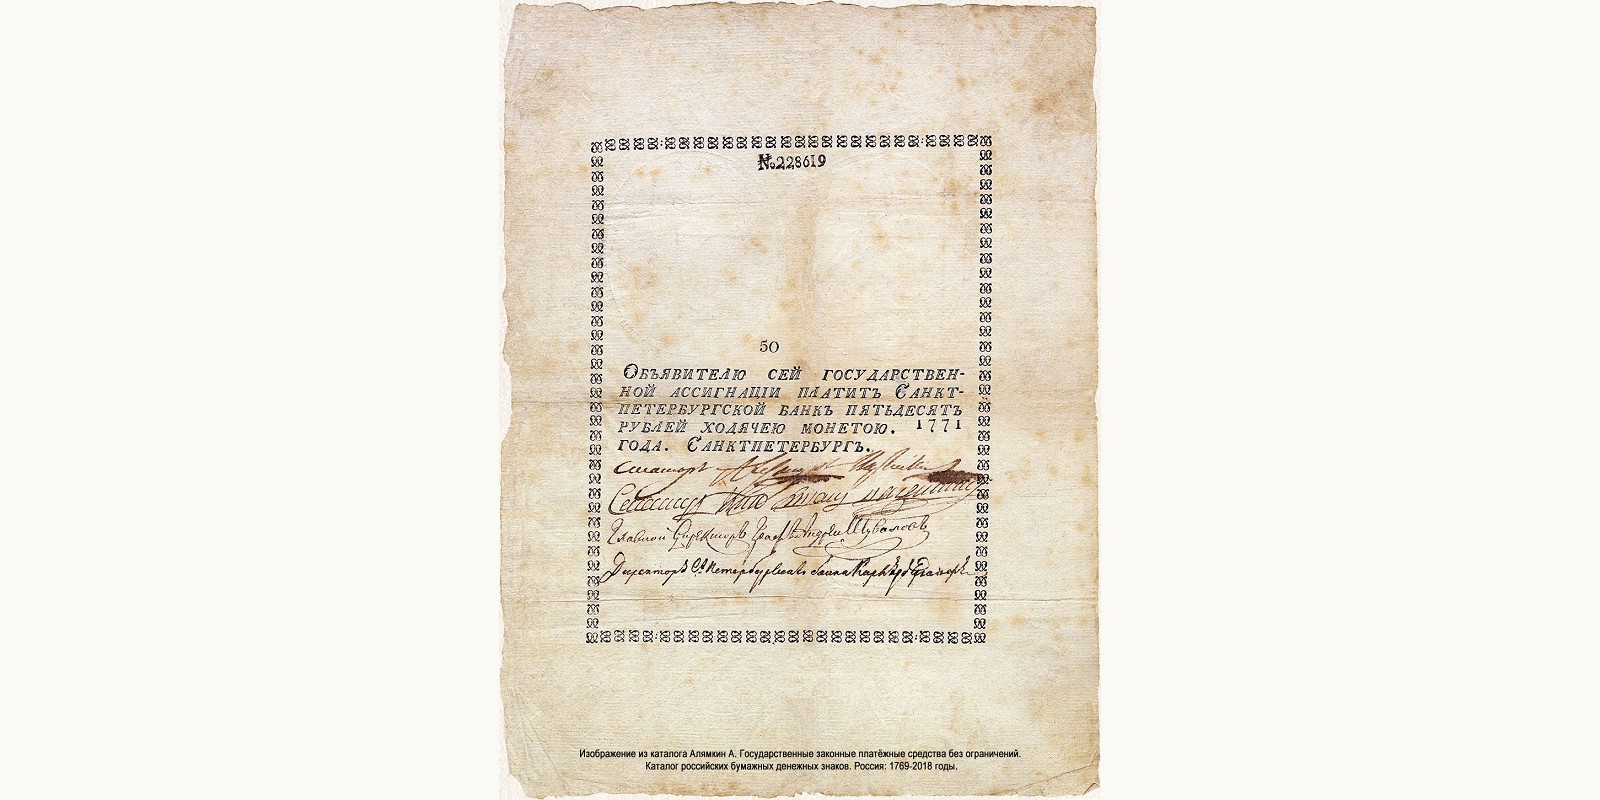 №228619
50
Объявителю сей государствен-
ной ассигнаціи платитъ Санкт-
петербургской банкъ пятьдесятъ
рублей ходячею монетою. 1771
года. Санктпетербургъ.
Главной Директоръ Графъ Андрей Шуваловъ
Директоръ
Изображение из каталога Алямкин А. Государственные законные платёжные средства без ограничений.
Каталог российских бумажных денежных знаков. Россия: 1769-2018 годы.